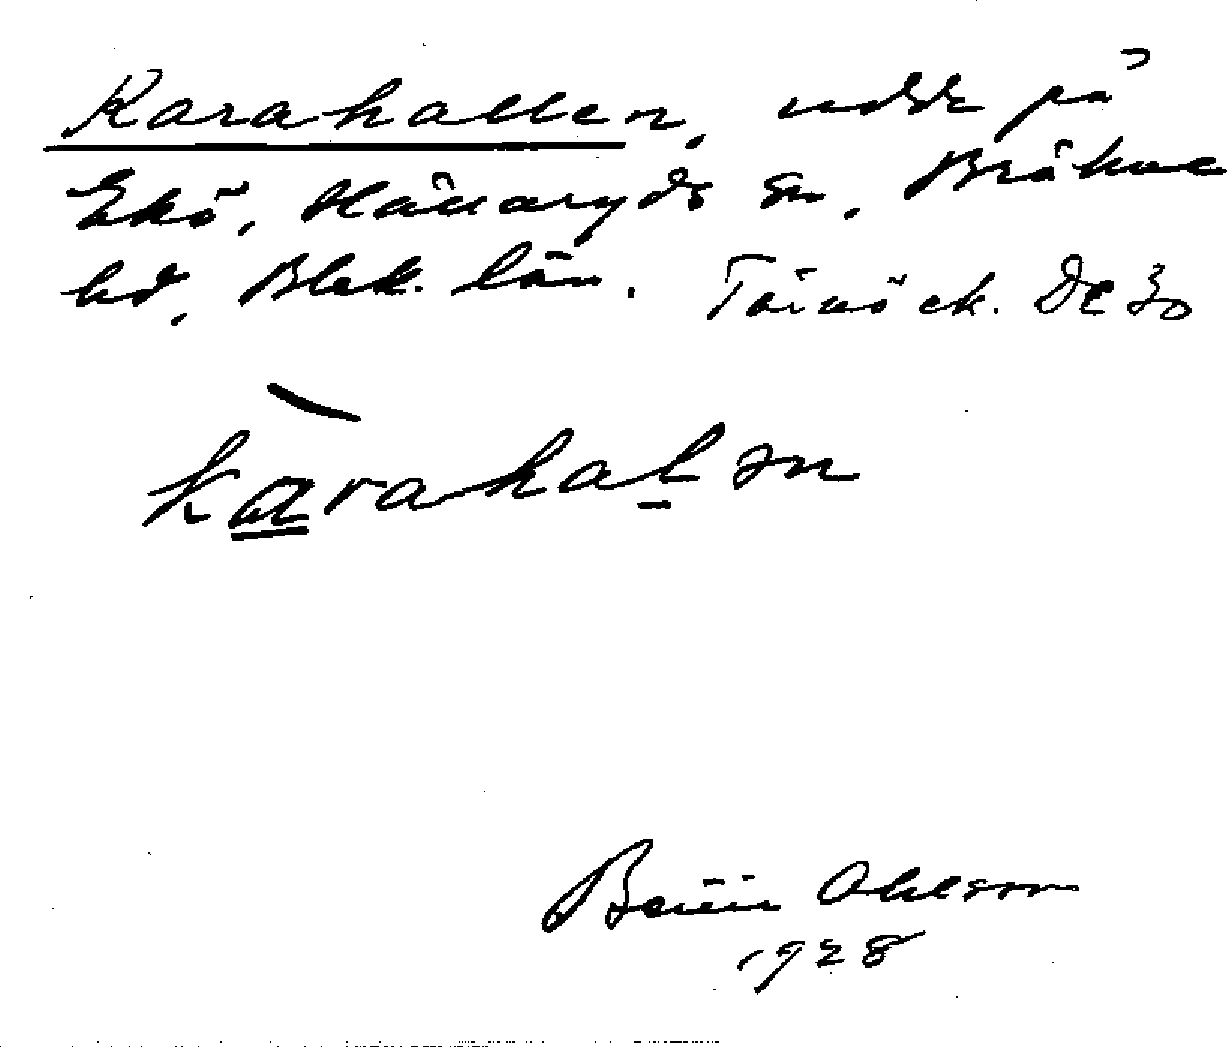 Karahallen, udde på
Ekö, Hällaryds sn, Bräkne
hd, Blek. län. Tärnö ek. Dc 30
karahalən
Bertil Ohlsson
1928